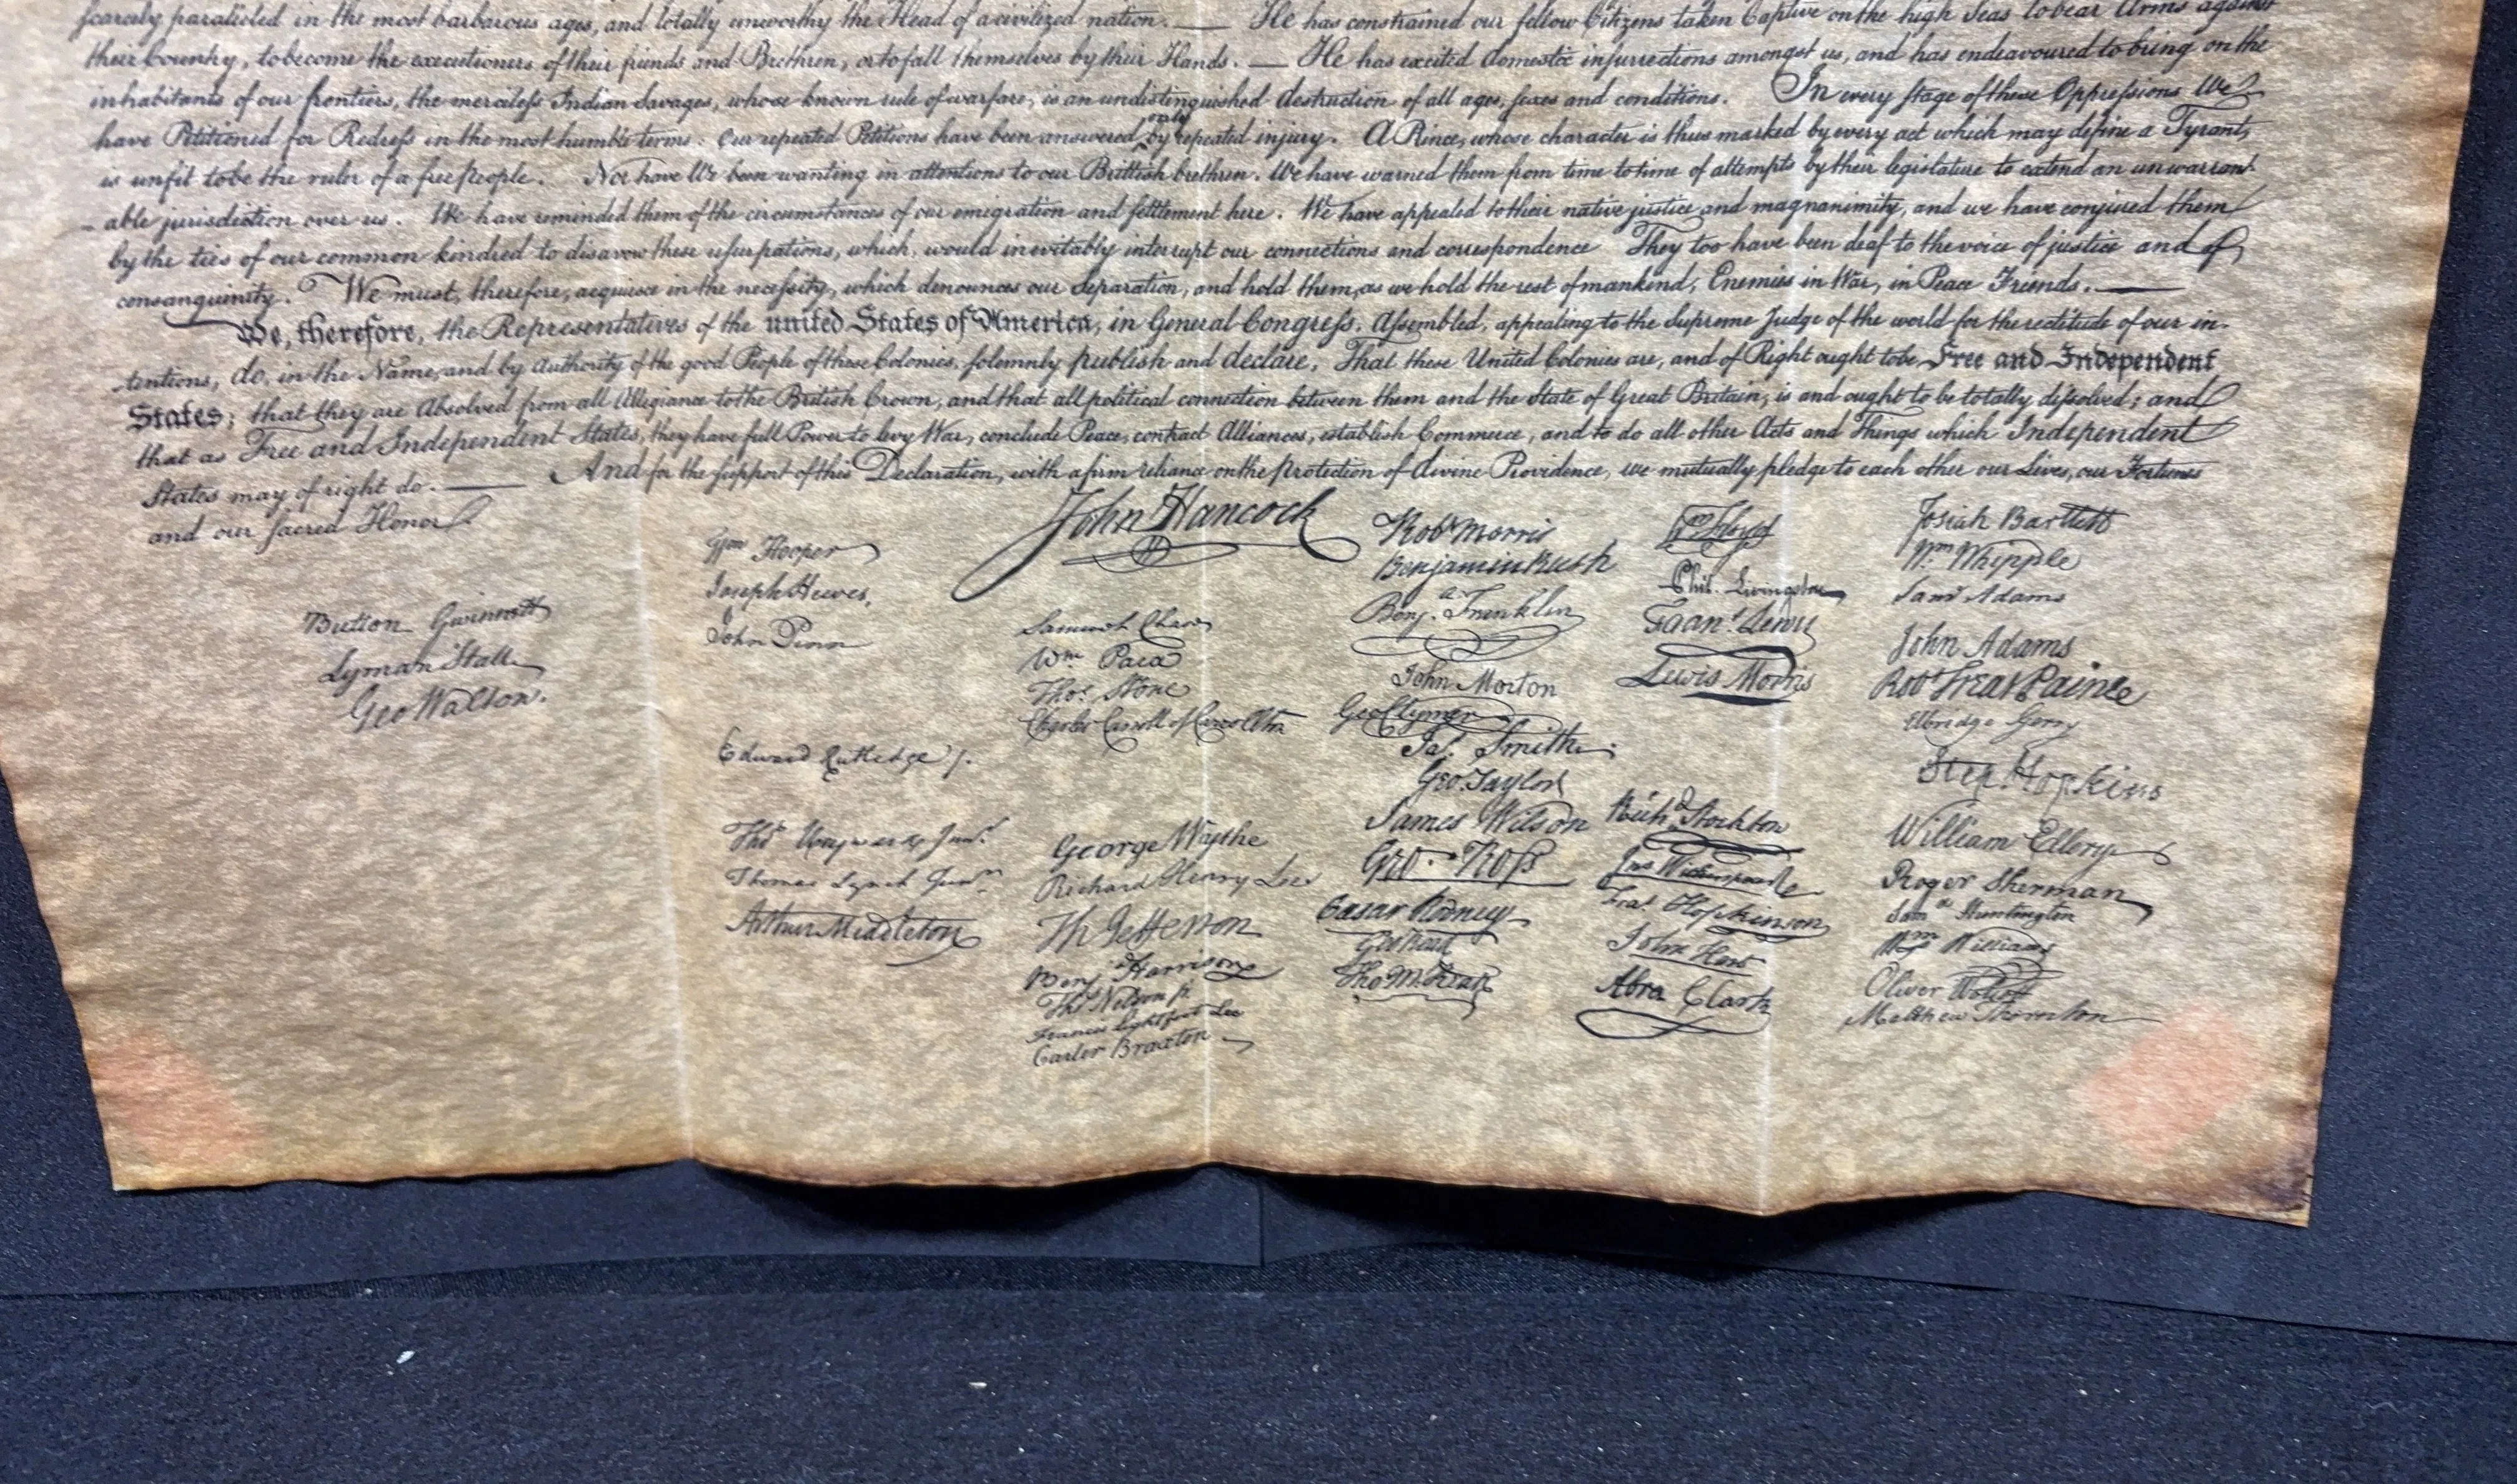 scarcely paralleled in the most barbarous ages, and totally unworthy the Head of a civilized nation. — He has constrained our fellow Citizens taken Captive on the high Seas to bear Arms against
their Country, to become the executioners of their friends and Brethren, or to fall themselves by their Hands. — He has excited domestic insurrections amongst us, and has endeavoured to bring on the
inhabitants of our frontiers, the merciless Indian Savages, whose known rule of warfare, is an undistinguished destruction of all ages, sexes and conditions. In every stage of these Oppressions We
have Petitioned for Redress in the most humble terms: Our repeated Petitions have been answered only by repeated injury. A Prince, whose character is thus marked by every act which may define a Tyrant,
is unfit to be the ruler of a free people. Nor have We been wanting in attentions to our Brittish brethren. We have warned them from time to time of attempts by their legislature to extend an unwarrant-
-able jurisdiction over us. We have reminded them of the circumstances of our emigration and settlement here. We have appealed to their native justice and magnanimity, and we have conjured them
by the ties of our common kindred to disavow these usurpations, which, would inevitably interrupt our connections and correspondence They too have been deaf to the voice of justice and of
consanguinity. We must, therefore, acquiesce in the necessity, which denounces our Separation, and hold them, as we hold the rest of mankind, Enemies in War, in Peace Friends. —
We, therefore, the Representatives of the united States of America, in General Congress, Assembled, appealing to the Supreme Judge of the world for the rectitude of our in-
tentions, do, in the Name, and by Authority of the good People of these Colonies, solemnly publish and declare, That these United Colonies are, and of Right ought to be Free and Independent
States; that they are Absolved from all Allegiance to the British Crown, and that all political connection between them and the State of Great Britain, is and ought to be totally dissolved; and
that as Free and Independent States, they have full Power to levy War, conclude Peace, contract Alliances, establish Commerce, and to do all other Acts and Things which Independent
States may of right do. — And for the support of this Declaration, with a firm reliance on the Protection of divine Providence, we mutually pledge to each other our Lives, our Fortunes
and our sacred Honor.
John Hancock
Button Gwinnett
Lyman Hall
Geo Walton.
Wm Hooper
Joseph Hewes,
John Penn
Edward Rutledge /.
Thos Heyward Junr.
Thomas Lynch Junr.
Arthur Middleton
Samuel Chase
Wm Paca
Thos. Stone
Charles Carroll of Carrollton
George Wythe
Richard Henry Lee
Th Jefferson
Benj Harrison
Thos Nelson jr.
Francis Lightfoot Lee
Carter Braxton
Robt Morris
Benjamin Rush
Benj. Franklin
John Morton
Geo Clymer
Jas. Smith
Geo. Taylor
James Wilson
Geo. Ross
Caesar Rodney
Geo Read
Tho M:Kean
Wm Floyd
Phil. Livingston
Frans. Lewis
Lewis Morris
Richd. Stockton
Jno Witherspoon
Fras. Hopkinson
John Hart
Abra Clark
Josiah Bartlett
Wm: Whipple
Saml Adams
John Adams
Robt Treat Paine
Elbridge Gerry
Step. Hopkins
William Ellery
Roger Sherman
Saml Huntington
Wm Williams
Oliver Wolcott
Matthew Thornton